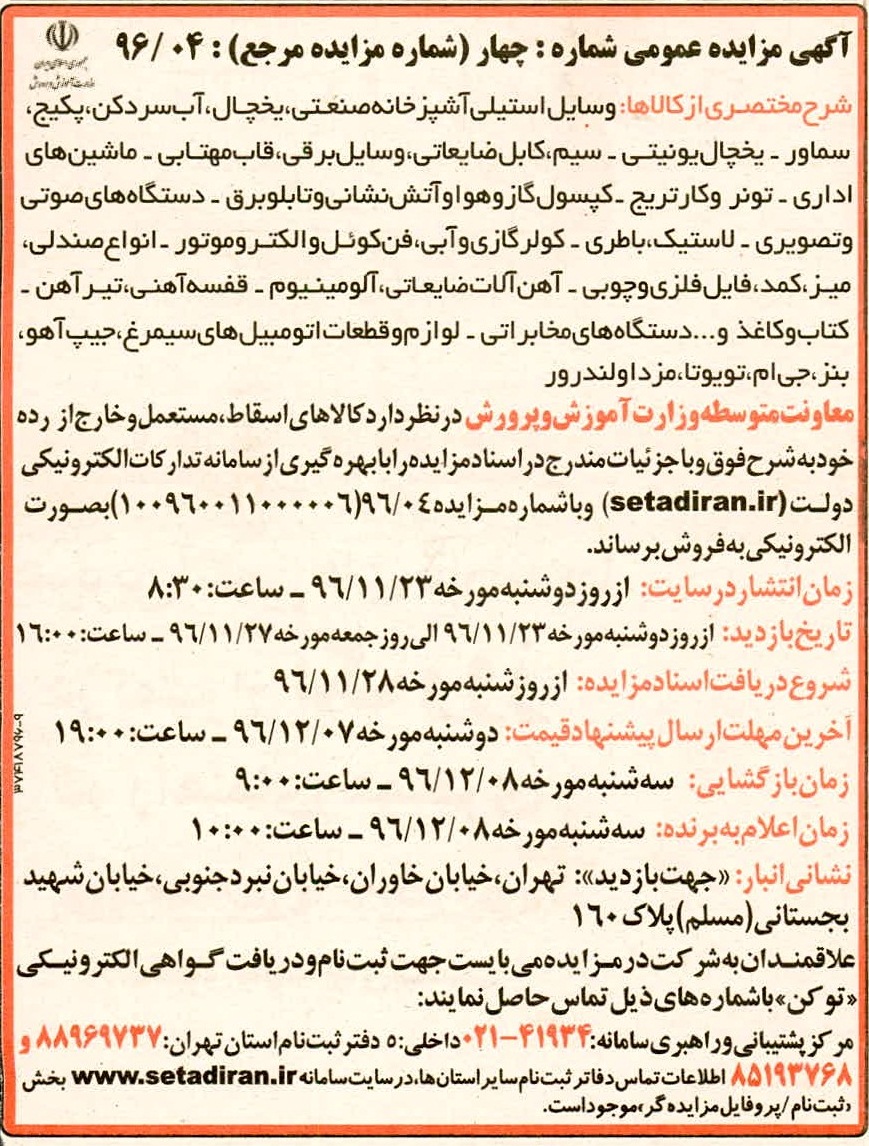 آگهی مزایده عمومی شماره : چهار (شماره مزایده مرجع) : ۹۶/۰۴
جمهوری اسلامی ایران
وزارت آموزش و پرورش
شرح مختصری از کالاها: وسایل استیلی آشپزخانه صنعتی، یخچال، آب سردکن، پکیج،
سماور ـ یخچال یونیتی ـ سیم، کابل ضایعاتی، وسایل برقی، قاب مهتابی ـ ماشین های
اداری ـ تونر وکارتریج ـ کپسول گاز و هوا و آتش نشانی و تابلو برق ـ دستگاه های صوتی
وتصویری ـ لاستیک، باطری ـ کولر گازی و آبی، فن کوئل و الکتروموتور ـ انواع صندلی،
میز، کمد، فایل فلزی و چوبی ـ آهن آلات ضایعاتی، آلومینیوم ـ قفسه آهنی، تیر آهن ـ
کتاب و کاغذ و... دستگاه های مخابراتی ـ لوازم و قطعات اتومبیل های سیمرغ، جیپ آهو،
بنز، جی ام، تویوتا، مزدا و لندرور
معاونت متوسطه وزارت آموزش و پرورش در نظر دارد کالاهای اسقاط، مستعمل و خارج از رده
خود به شرح فوق و با جزئیات مندرج در اسناد مزایده را با بهره گیری از سامانه تدارکات الکترونیکی
دولت (setadiran.ir) و با شماره مزایده ۹۶/۰۴(۱۰۰۹۶۰۰۱۱۰۰۰۰۰۶) بصورت
الکترونیکی به فروش برساند.
زمان انتشار در سایت: از روز دوشنبه مورخه ۹۶/۱۱/۲۳ ـ ساعت: ۸:۳۰
تاریخ بازدید: از روز دوشنبه مورخه ۹۶/۱۱/۲۳ الی روز جمعه مورخه ۹۶/۱۱/۲۷ ـ ساعت: ۱۶:۰۰
شروع دریافت اسناد مزایده: از روز شنبه مورخه ۹۶/۱۱/۲۸
آخرین مهلت ارسال پیشنهاد قیمت: دوشنبه مورخه ۹۶/۱۲/۰۷ ـ ساعت: ۱۹:۰۰
زمان بازگشایی: سه شنبه مورخه ۹۶/۱۲/۰۸ ـ ساعت: ۹:۰۰
زمان اعلام به برنده: سه شنبه مورخه ۹۶/۱۲/۰۸ ـ ساعت: ۱۰:۰۰
نشانی انبار: «جهت بازدید»: تهران، خیابان خاوران، خیابان نبرد جنوبی، خیابان شهید
بجستانی (مسلم) پلاک ۱۶۰
علاقمندان به شرکت در مزایده می بایست جهت ثبت نام و دریافت گواهی الکترونیکی
«توکن» با شماره های ذیل تماس حاصل نمایند:
مرکز پشتیبانی و راهبری سامانه: ۴۱۹۳۴-۰۲۱ داخلی: ۵ دفتر ثبت نام استان تهران: ۸۸۹۶۹۷۳۷ و
۸۵۱۹۳۷۶۸ اطلاعات تماس دفاتر ثبت نام سایر استان ها، در سایت سامانه www.setadiran.ir بخش
«ثبت نام / پروفایل مزایده گر» موجود است.